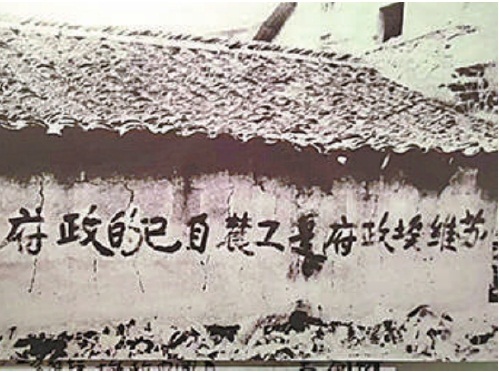 苏維埃政府是工農自己的政府